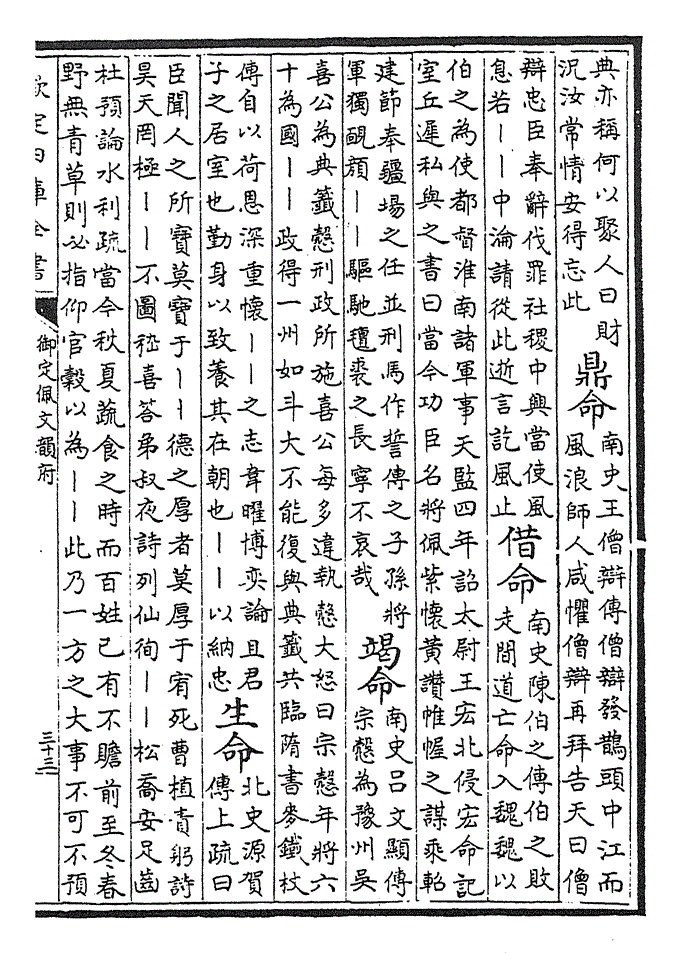 典亦稱何以聚人曰財
況汝常情安得忘此
鼎命
南史王僧辯傳僧辯發鵲頭中江而
風浪師人咸懼僧辯再拜告天曰僧
辯忠臣奉辭伐罪社稷中興當使風
息若||中淪請從此逝言訖風止
借命
南史陳伯之傳伯之敗
走間道亡命入魏魏以
伯之為使都督淮南諸軍事天監四年詔太尉王宏北侵宏命記
室丘遲私與之書曰當今功臣名將佩紫懷黃讚帷幄之謀乘軺
建節奉疆場之任並刑馬作誓傳之子孫將
軍獨靦顔||驅馳氊裘之長寧不哀哉
竭命
南史呂文顯傳
宗慤為豫州吳
喜公為典籤慤刑政所施喜公每多違執慤大怒曰宗慤年將六
十為國||政得一州如斗大不能復與典籤共臨隋書麥鐵杖
傳自以荷恩深重懷||之志韋曜博奕論且君
子之居室也勤身以致養其在朝也||以納忠
生命
北史源賀
傳上疏曰
臣聞人之所寶莫寶于||德之厚者莫厚于宥死曹植責躬詩
昊天罔極||不圖嵇喜答弟叔夜詩列仙徇||松喬安足齒
杜預論水利疏當今秋夏蔬食之時而百姓已有不贍前至冬春
野無青草則必指仰官穀以為||此乃一方之大事不可不預
欽定四庫全書
御定佩文韻府
三十三